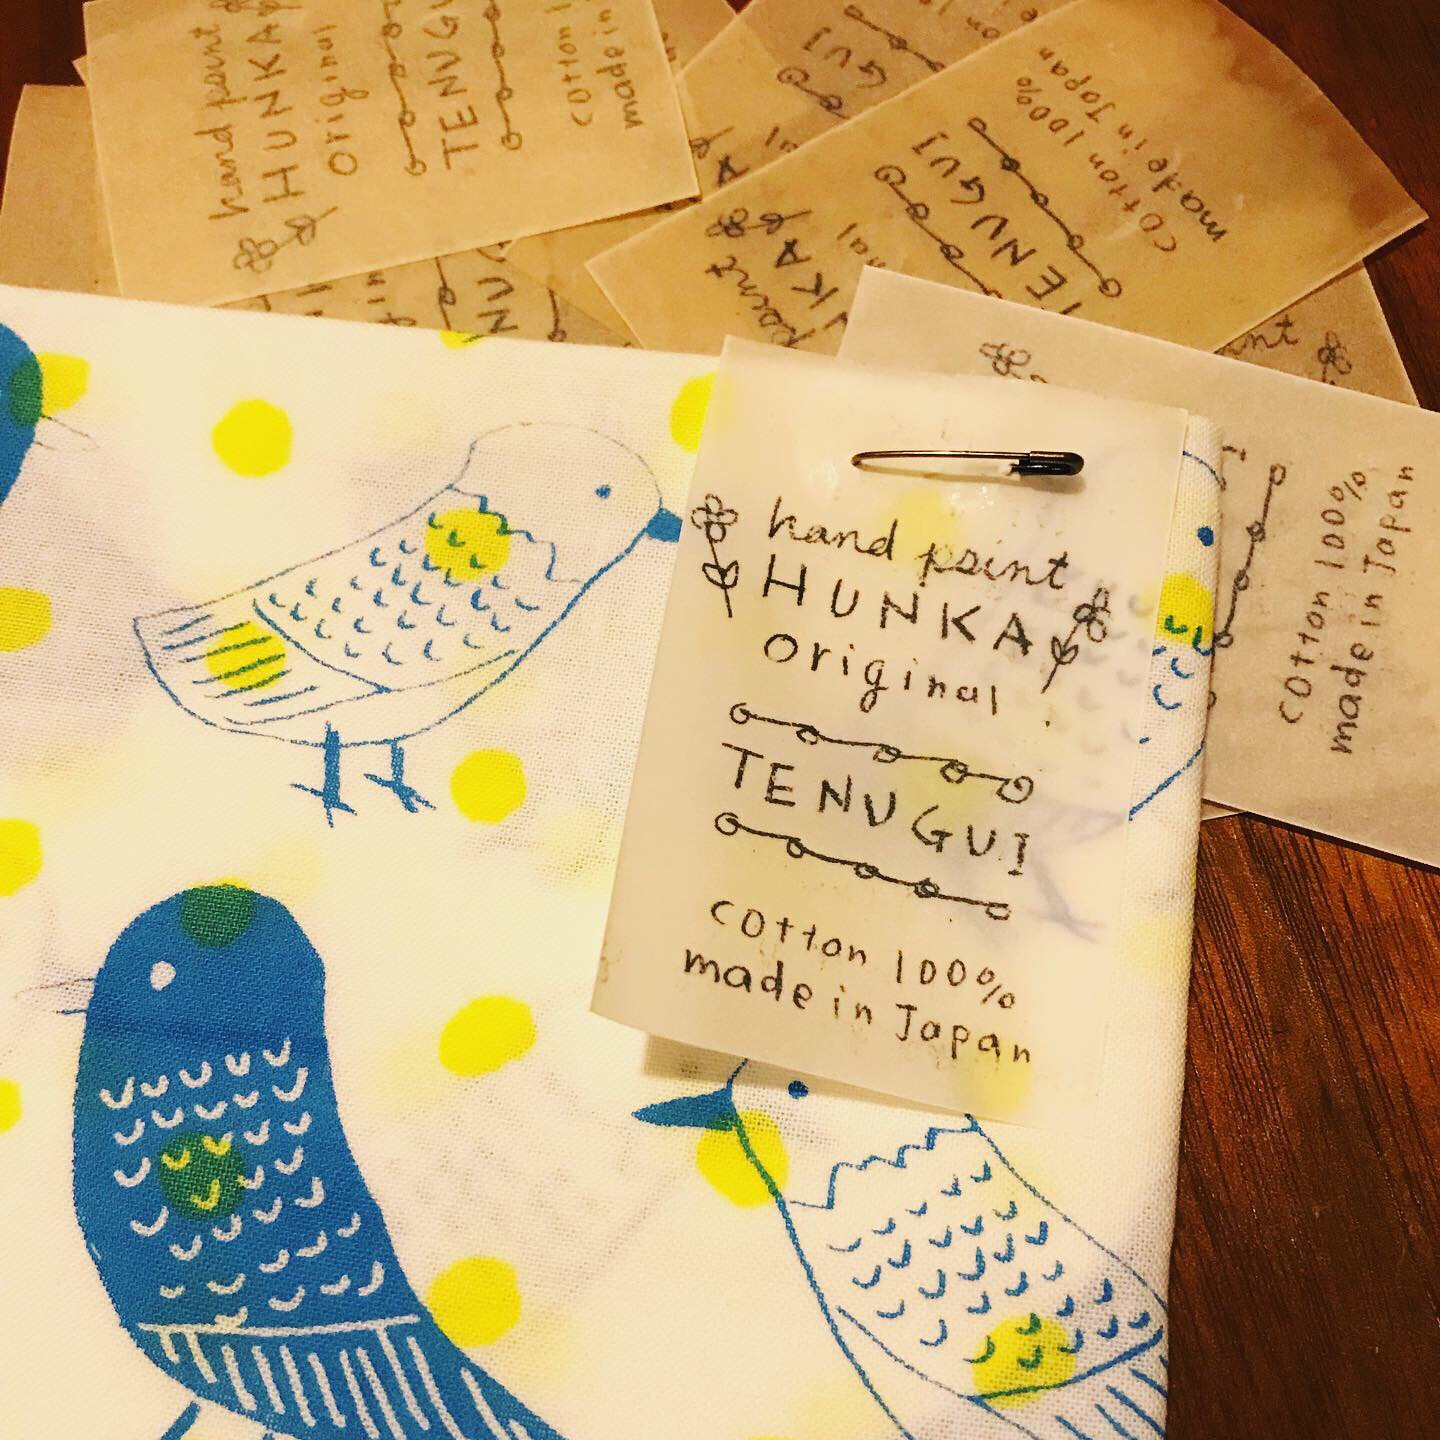 hand print
HUNKA
original
TENUGUI
cotton 100%
made in Japan
hand print
HUNKA
original
TENUGUI
cotton 1
made in
GUI
TENUGUI
cotton 100%
made in Japan
print
cotton 100%
made in Japan